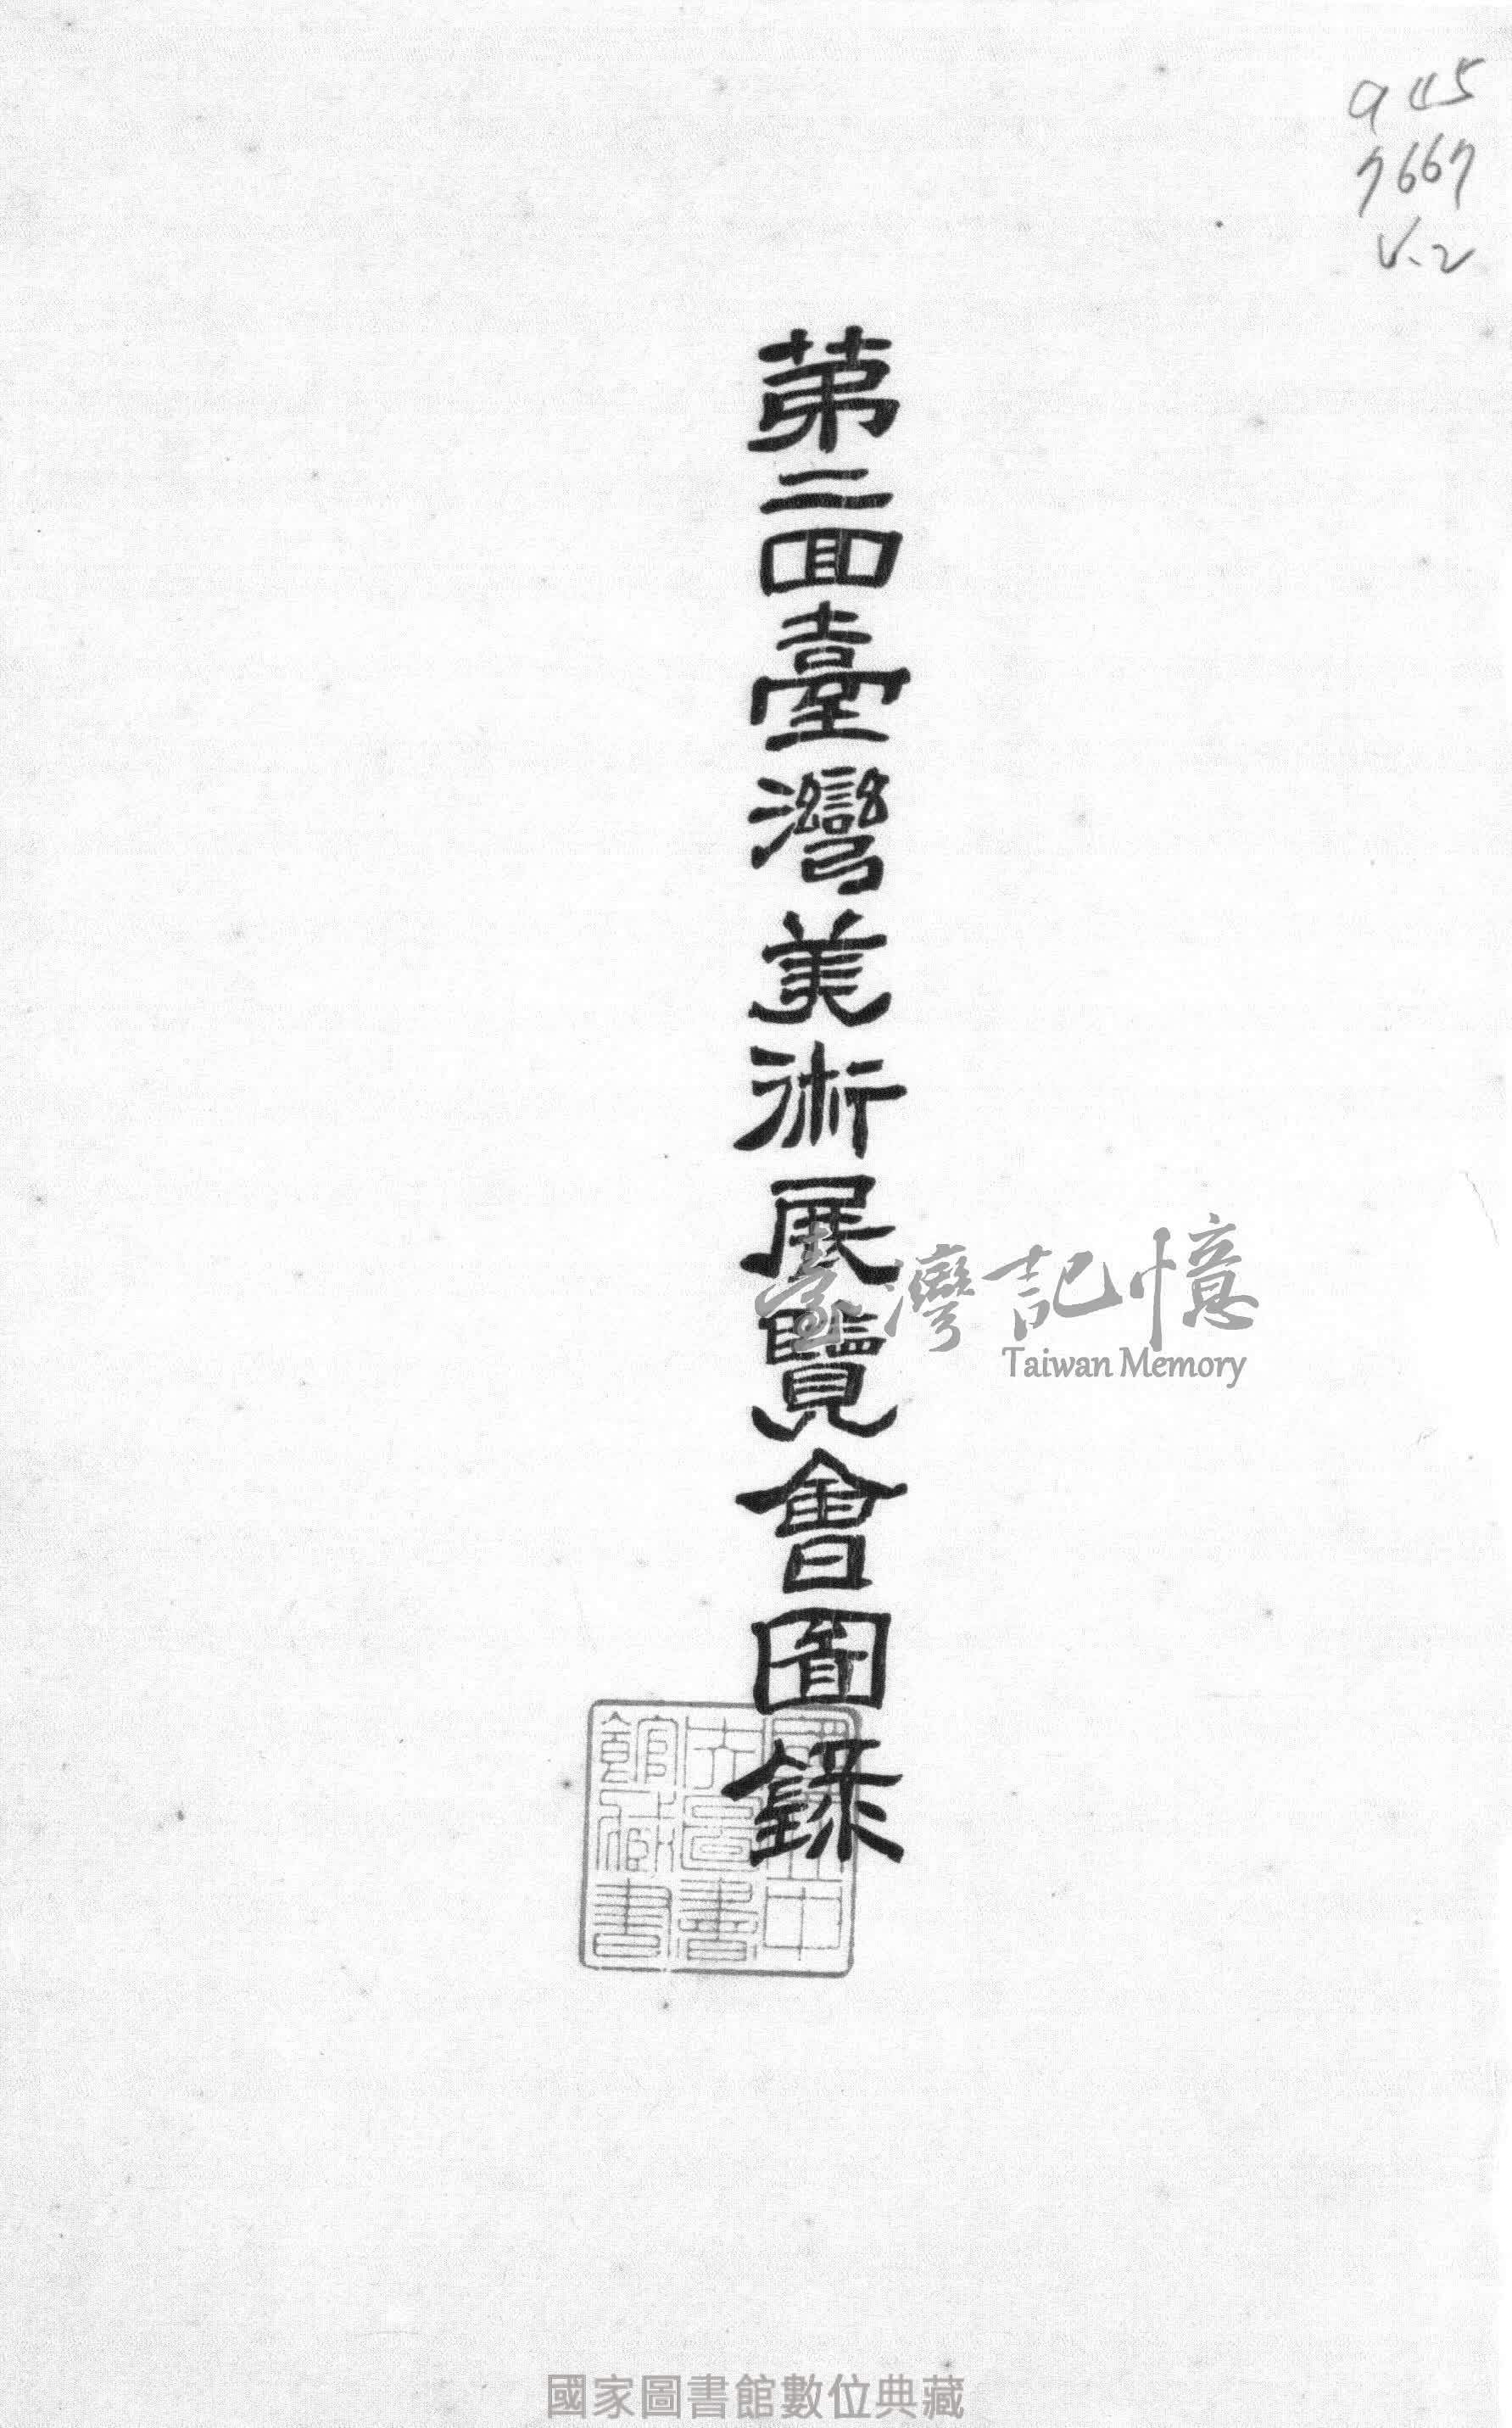 945
7667
V.2
第二回臺灣美術展覽會圖錄
臺灣記憶
Taiwan Memory
國立中
央圖書
館藏書
國家圖書館數位典藏